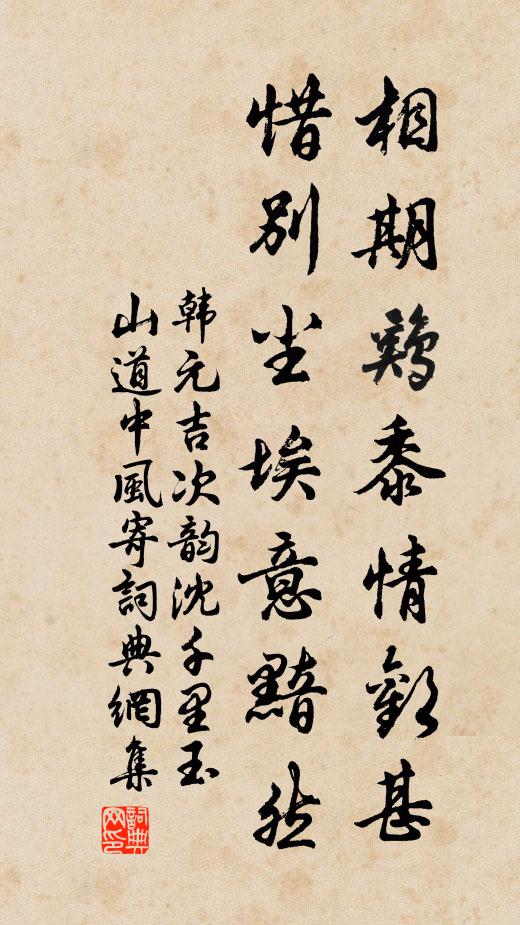 相期鷄黍情歡甚
惜别尘埃意黯然
韩元吉次韵沈千里玉
山道中風寄詞典網集
詞典网印